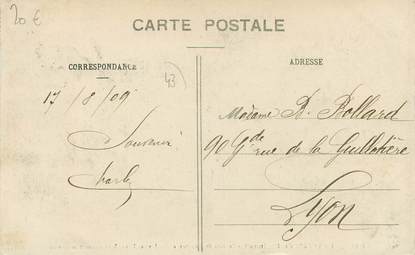 20 €
CARTE POSTALE
CORRESPONDANCE
ADRESSE
43
17/8/09
Souvenir
Charles
Madame B. Bollard
90 Gde rue de la Guillotière
Lyon